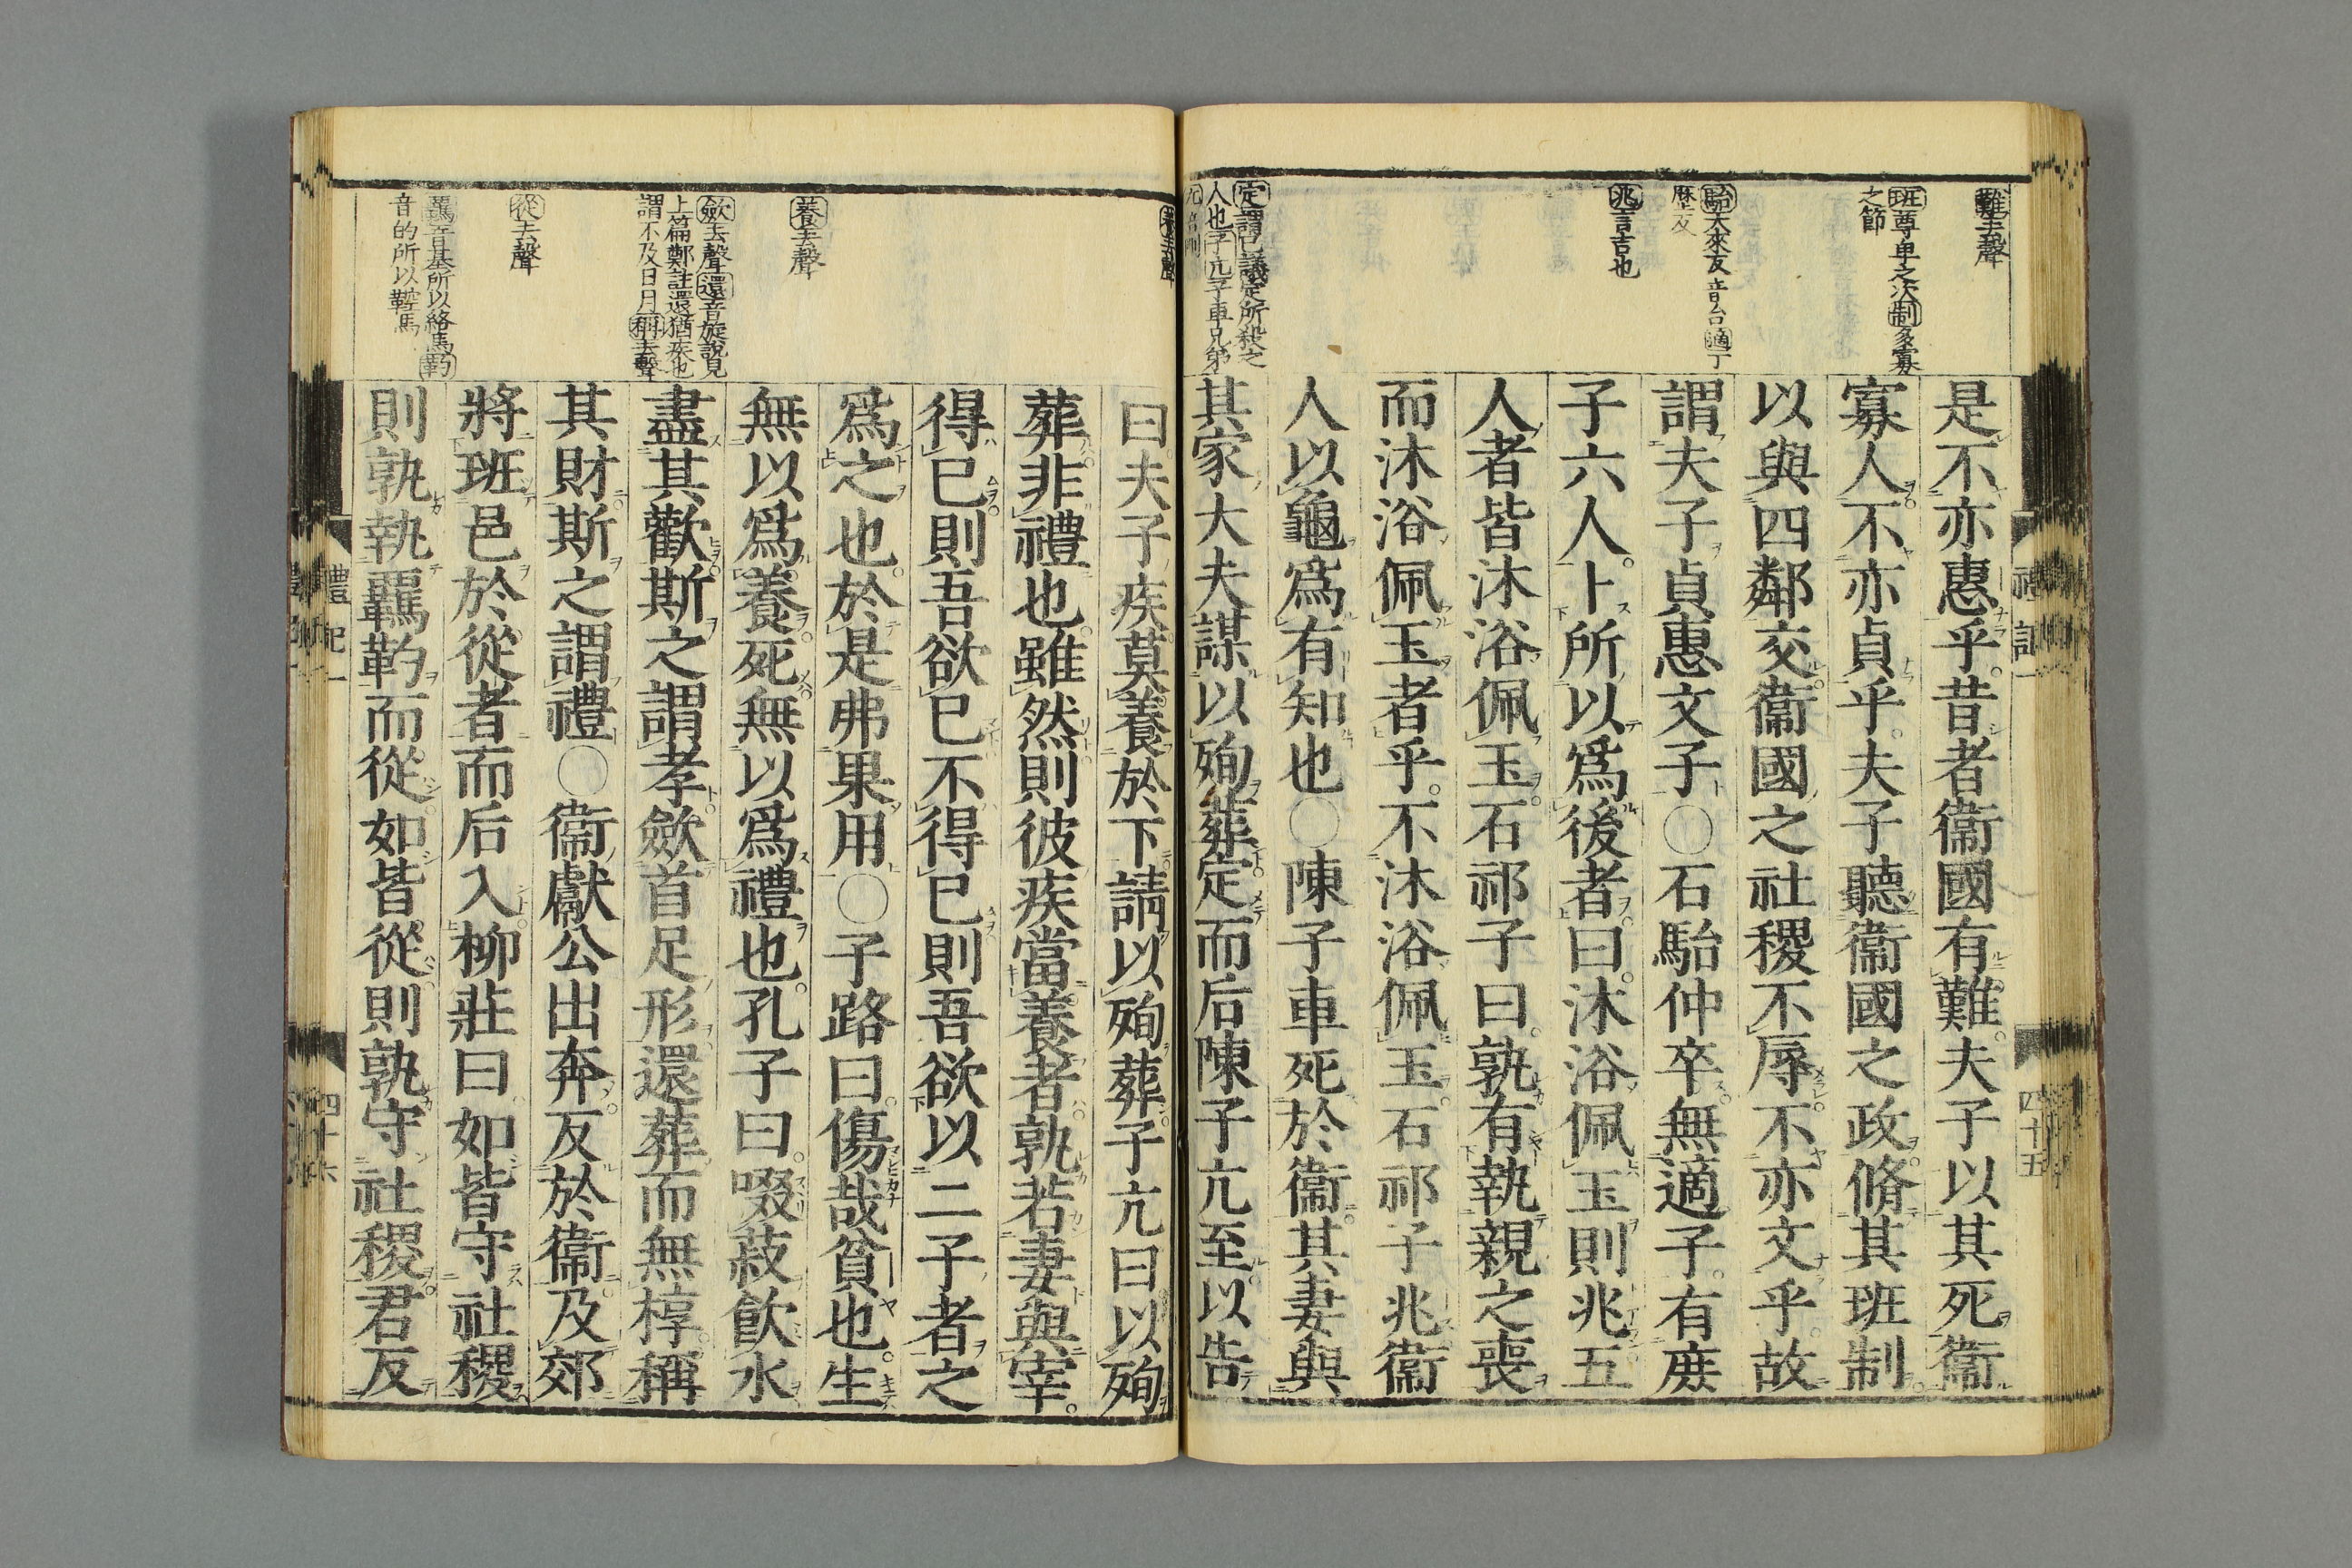 難去聲
班尊卑之次制多寡
之節
駘大來反音台適丁
歷反
兆言吉也
定謂已議定所殺之
人也子亢子車兄弟
是不亦惠乎昔者衞國有難夫子以其死衞
寡人不亦貞乎夫子聽衞國之政脩其班制
以與四鄰交衞國之社稷不辱不亦文乎故
謂夫子貞惠文子○石駘仲卒無適子有庶
子六人卜所以爲後者曰沐浴佩玉則兆五
人者皆沐浴佩玉石祁子曰孰有執親之喪
而沐浴佩玉者乎不沐浴佩玉石祁子兆衞
人以龜爲有知也○陳子車死於衞其妻與
其家大夫謀以殉葬定而后陳子亢至以告
禮記一
四十五
養去聲
養去聲
斂去聲還音旋說見
上篇鄭註還猶疾也
謂不及日月稱去聲
從去聲
羈音基所以絡馬靮
音的所以鞚馬
曰夫子疾莫養於下請以殉葬子亢曰以殉
葬非禮也雖然則彼疾當養者孰若妻與宰
得已則吾欲已不得已則吾欲以二子者之
爲之也於是弗果用○子路曰傷哉貧也生
無以爲養死無以爲禮也孔子曰啜菽飮水
盡其歡斯之謂孝斂首足形還葬而無椁稱
其財斯之謂禮○衞獻公出奔反於衞及郊
將班邑於從者而后入柳莊曰如皆守社稷
則孰執羈靮而從如皆從則孰守社稷君反
禮記一
四十六